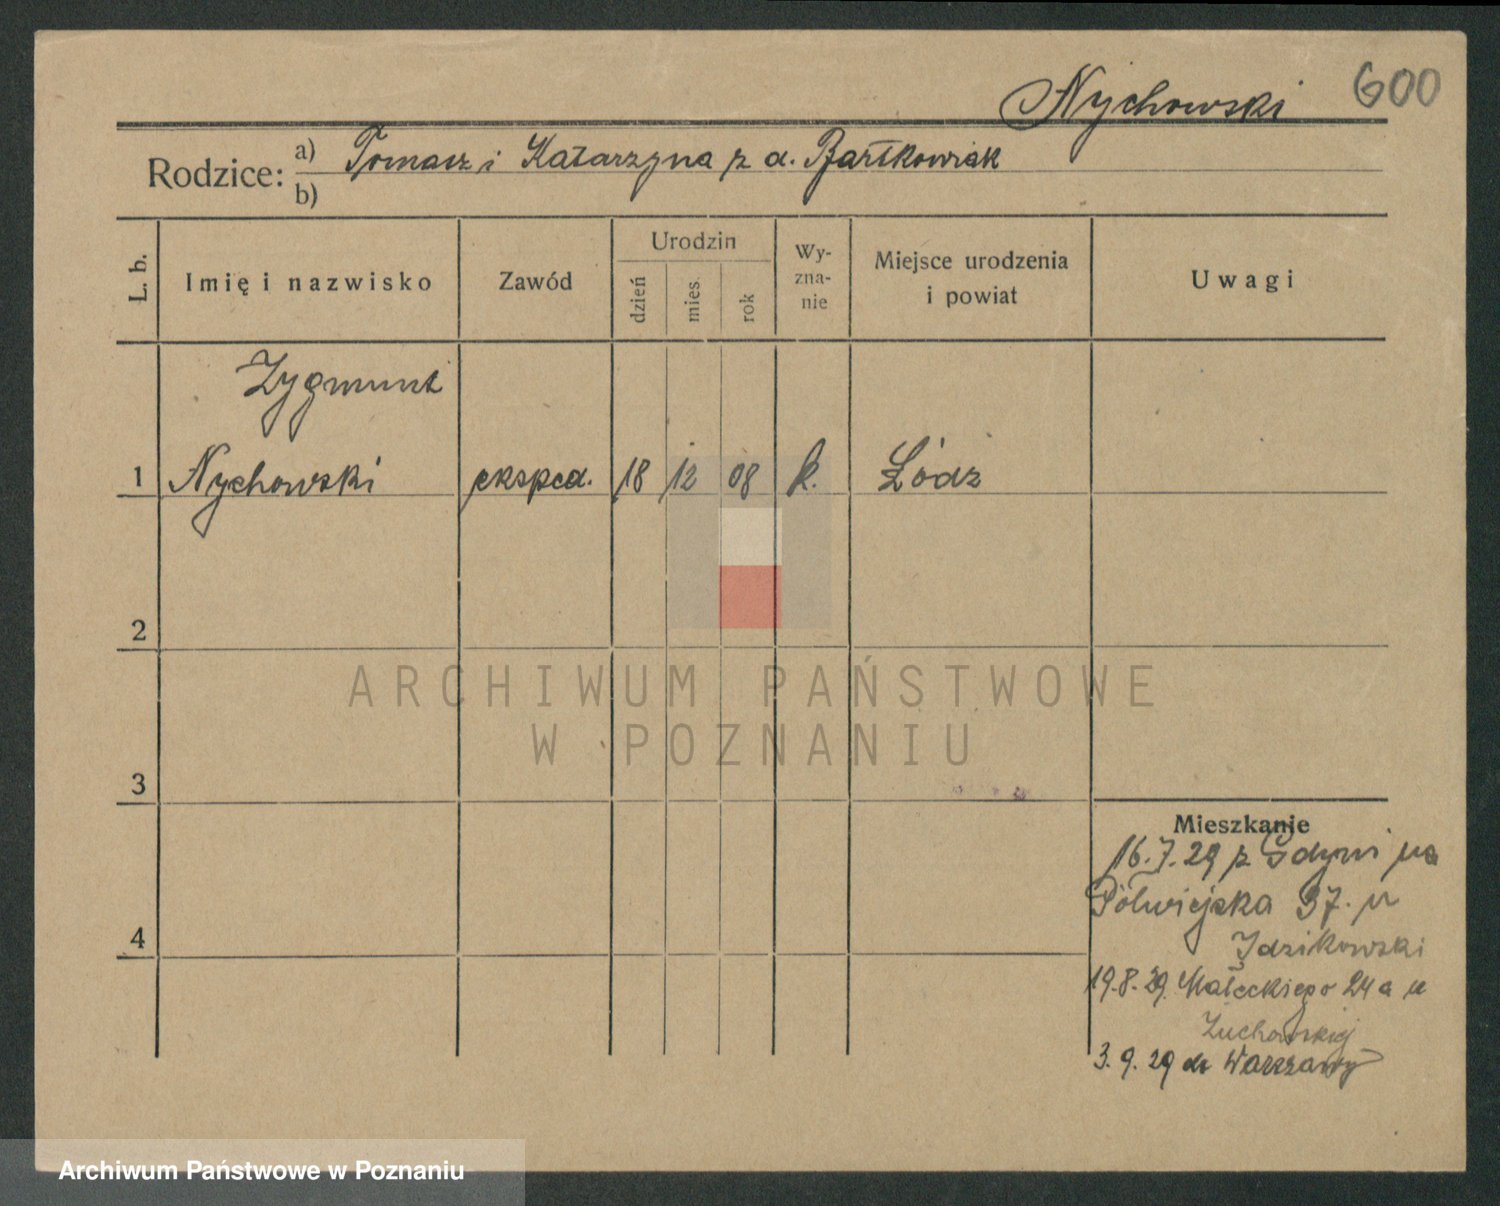 Nychowski 600
Rodzice: a) Tomasz i Katarzyna z d. Bartkowiak
b)
L. b. Imię i nazwisko Zawód Urodzin dzień mies. rok Wy-zna-nie Miejsce urodzenia i powiat Uwagi
Zygmunt
1 Nychowski eksped. 18 12 08 k. Łódź
2
ARCHIWUM PAŃSTWOWE
W POZNANIU
3
Mieszkanie
16.7.29 z Gdyni na
Półwiejska 37. u
4
Idzikowski
19.8.29. Małeckiego 24a u
Żuchowskiej
3.9.29 do Warszawy
Archiwum Państwowe w Poznaniu